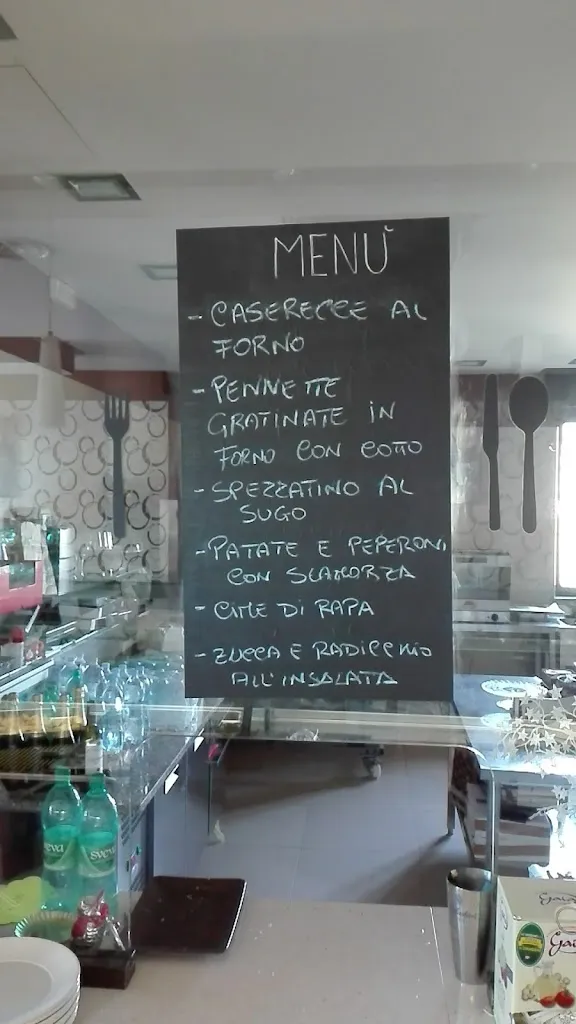 MENÙ
- CASERECCE AL
FORNO
- PENNETTE
GRATINATE IN
FORNO CON COTTO
- SPEZZATINO AL
SUGO
- PATATE E PEPERONI
CON SCAMORZA
- CIME DI RAPA
- ZUCCA E RADICCHIO
ALL'INSALATA
sveva